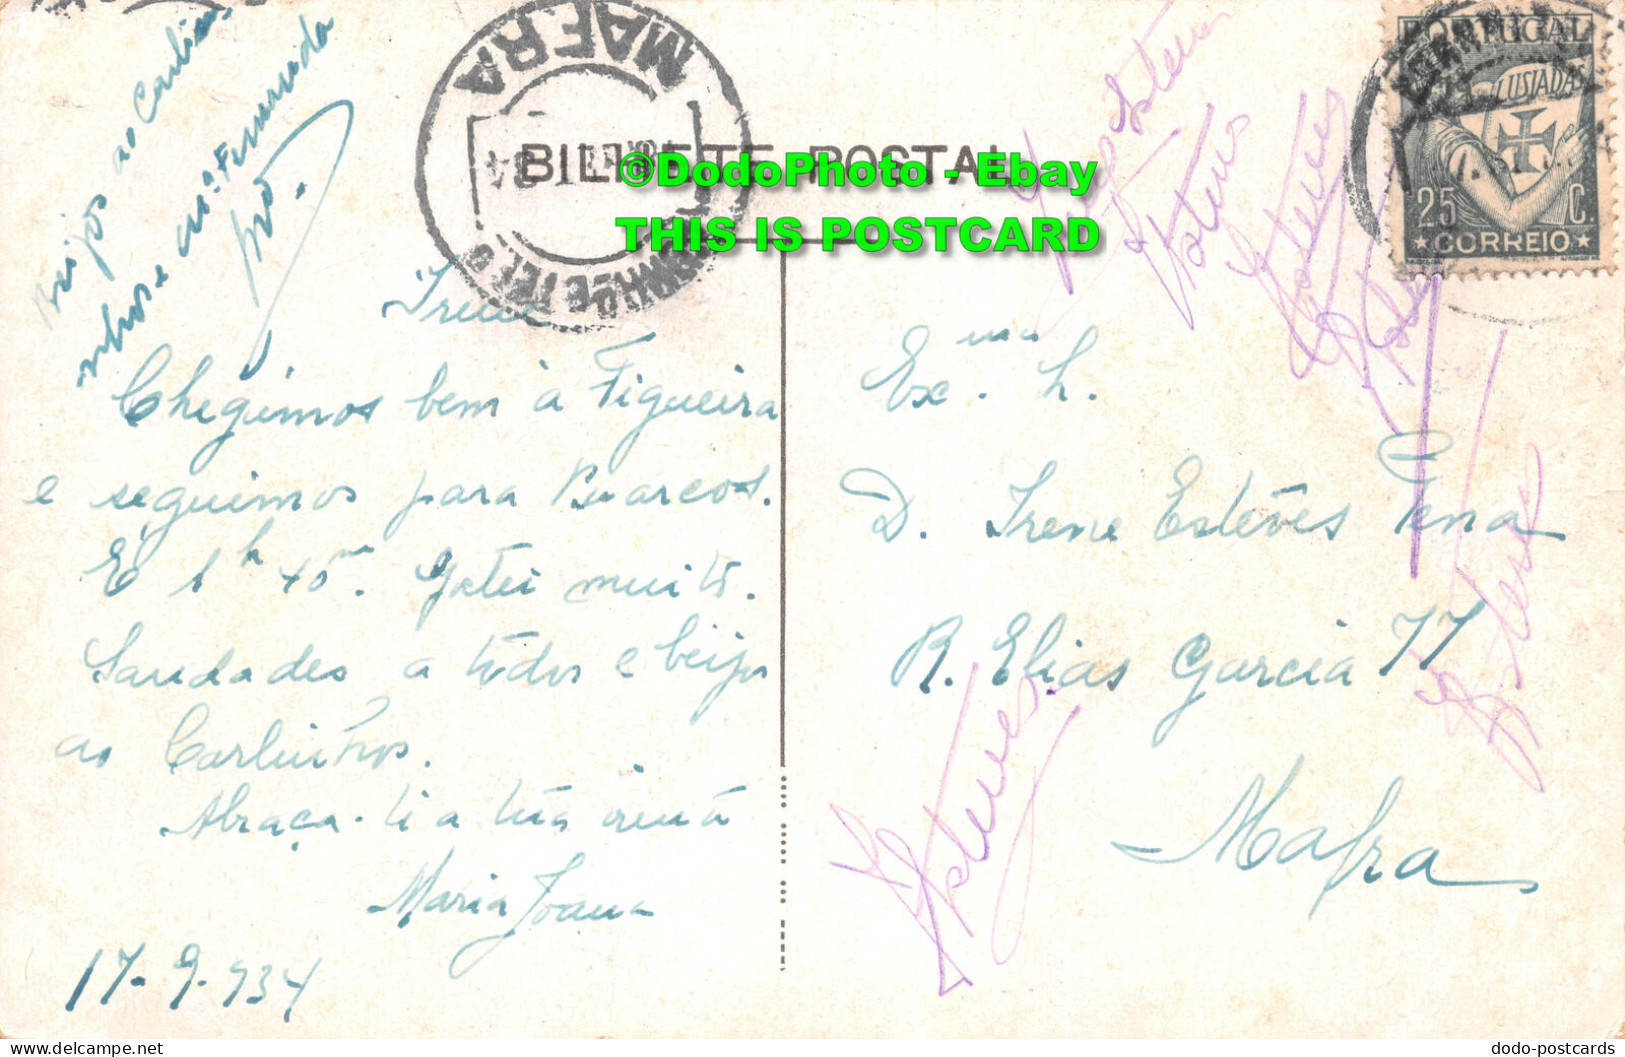 Beijos ao Carli-
nhos e
MAFRA
BILHETE POSTAL
©DodoPhoto - Ebay
THIS IS POSTCARD
PORTUGAL
LUSIADAS
25 C.
CORREIO
Irene
Chegámos bem á Figueira
e seguimos para Buarcos.
É 1h 45m. Gostei muito.
Saudades a todos e beijos
ao Carlinhos.
Abraça-ti a tua irmã
Maria Joana
17-9-934
Exma. Sr.
D. Irene Estêves Pena
R. Elias Garcia 77
Mafra
Esteves
Esteves
Esteves
Esteves
dodo-postcards